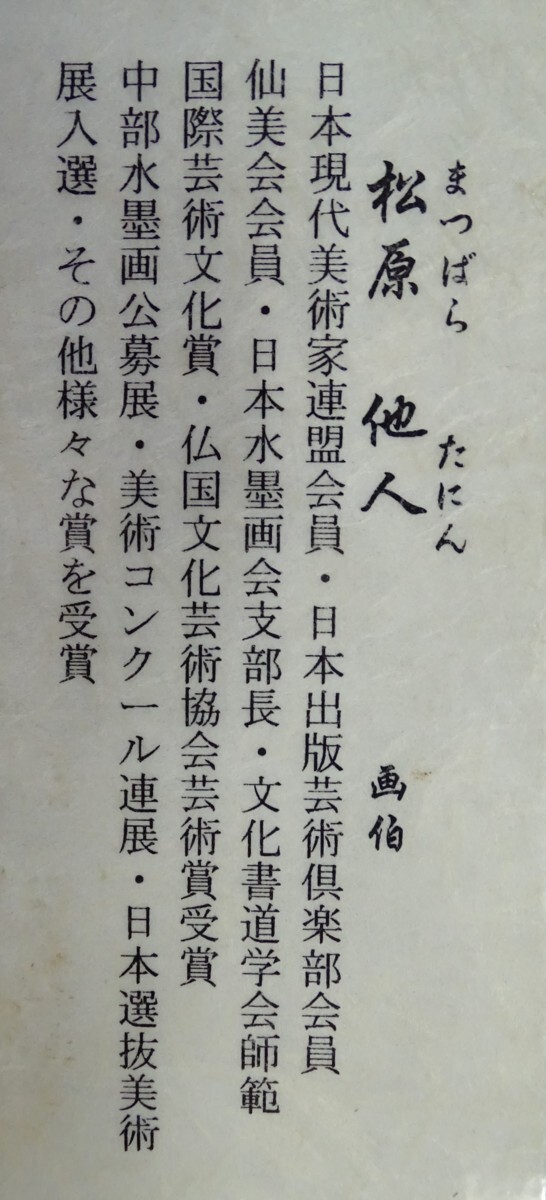 まつばら たにん
松原 他人 画伯
日本現代美術家連盟会員・日本出版芸術倶楽部会員
仙美会会員・日本水墨画会支部長・文化書道学会師範
国際芸術文化賞・仏国文化芸術協会芸術賞受賞
中部水墨画公募展・美術コンクール連展・日本選抜美術
展入選・その他様々な賞を受賞